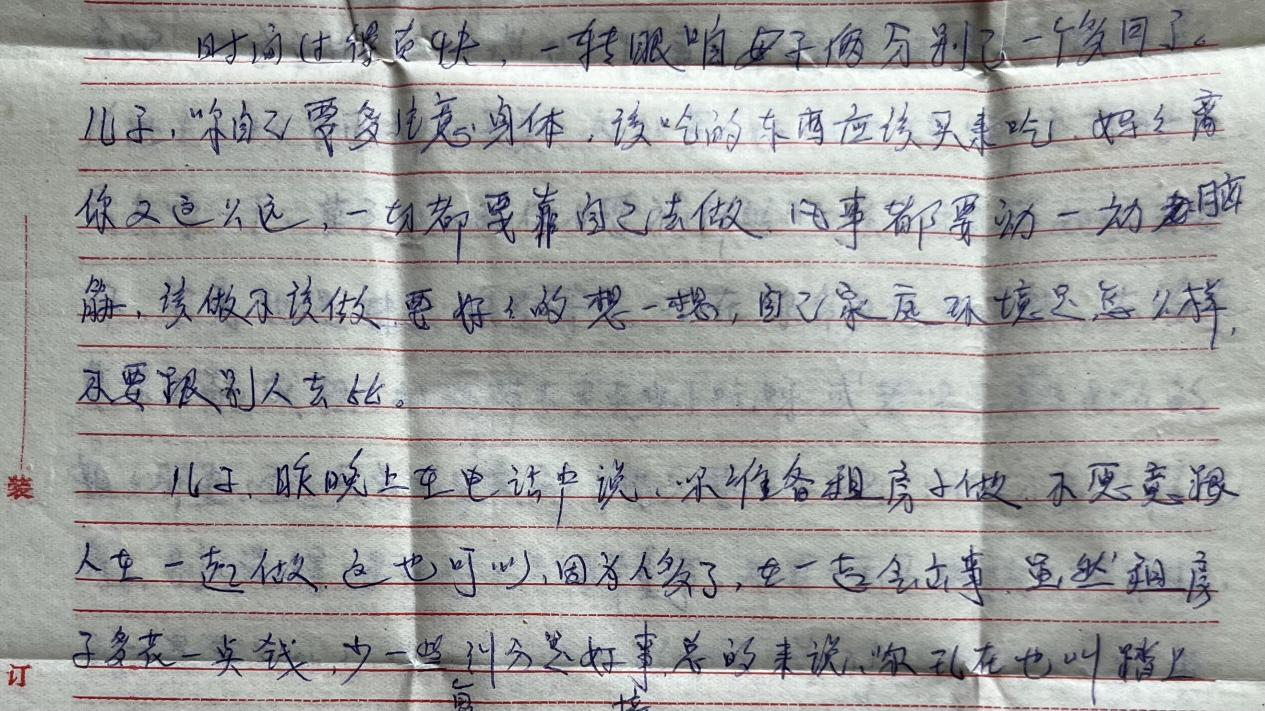 时间过得真快，一转眼咱母子俩分别已一个多月了。
儿子，你自己要多注意身体，该吃的东西应该买来吃，妈妈离
你又这么远，一切都要靠自己去做，凡事都要动一动脑
筋，该做不该做，要好好的想一想，自己家庭环境是怎么样，
不要跟别人去比。
儿子，昨晚上在电话中说，你准备租房子做，不愿意跟
人在一起做，这也可以，因为人多了，在一起会出事，虽然租房
子多花一点钱，少一些纠分是好事，总的来说，你现在也叫踏上
装
订